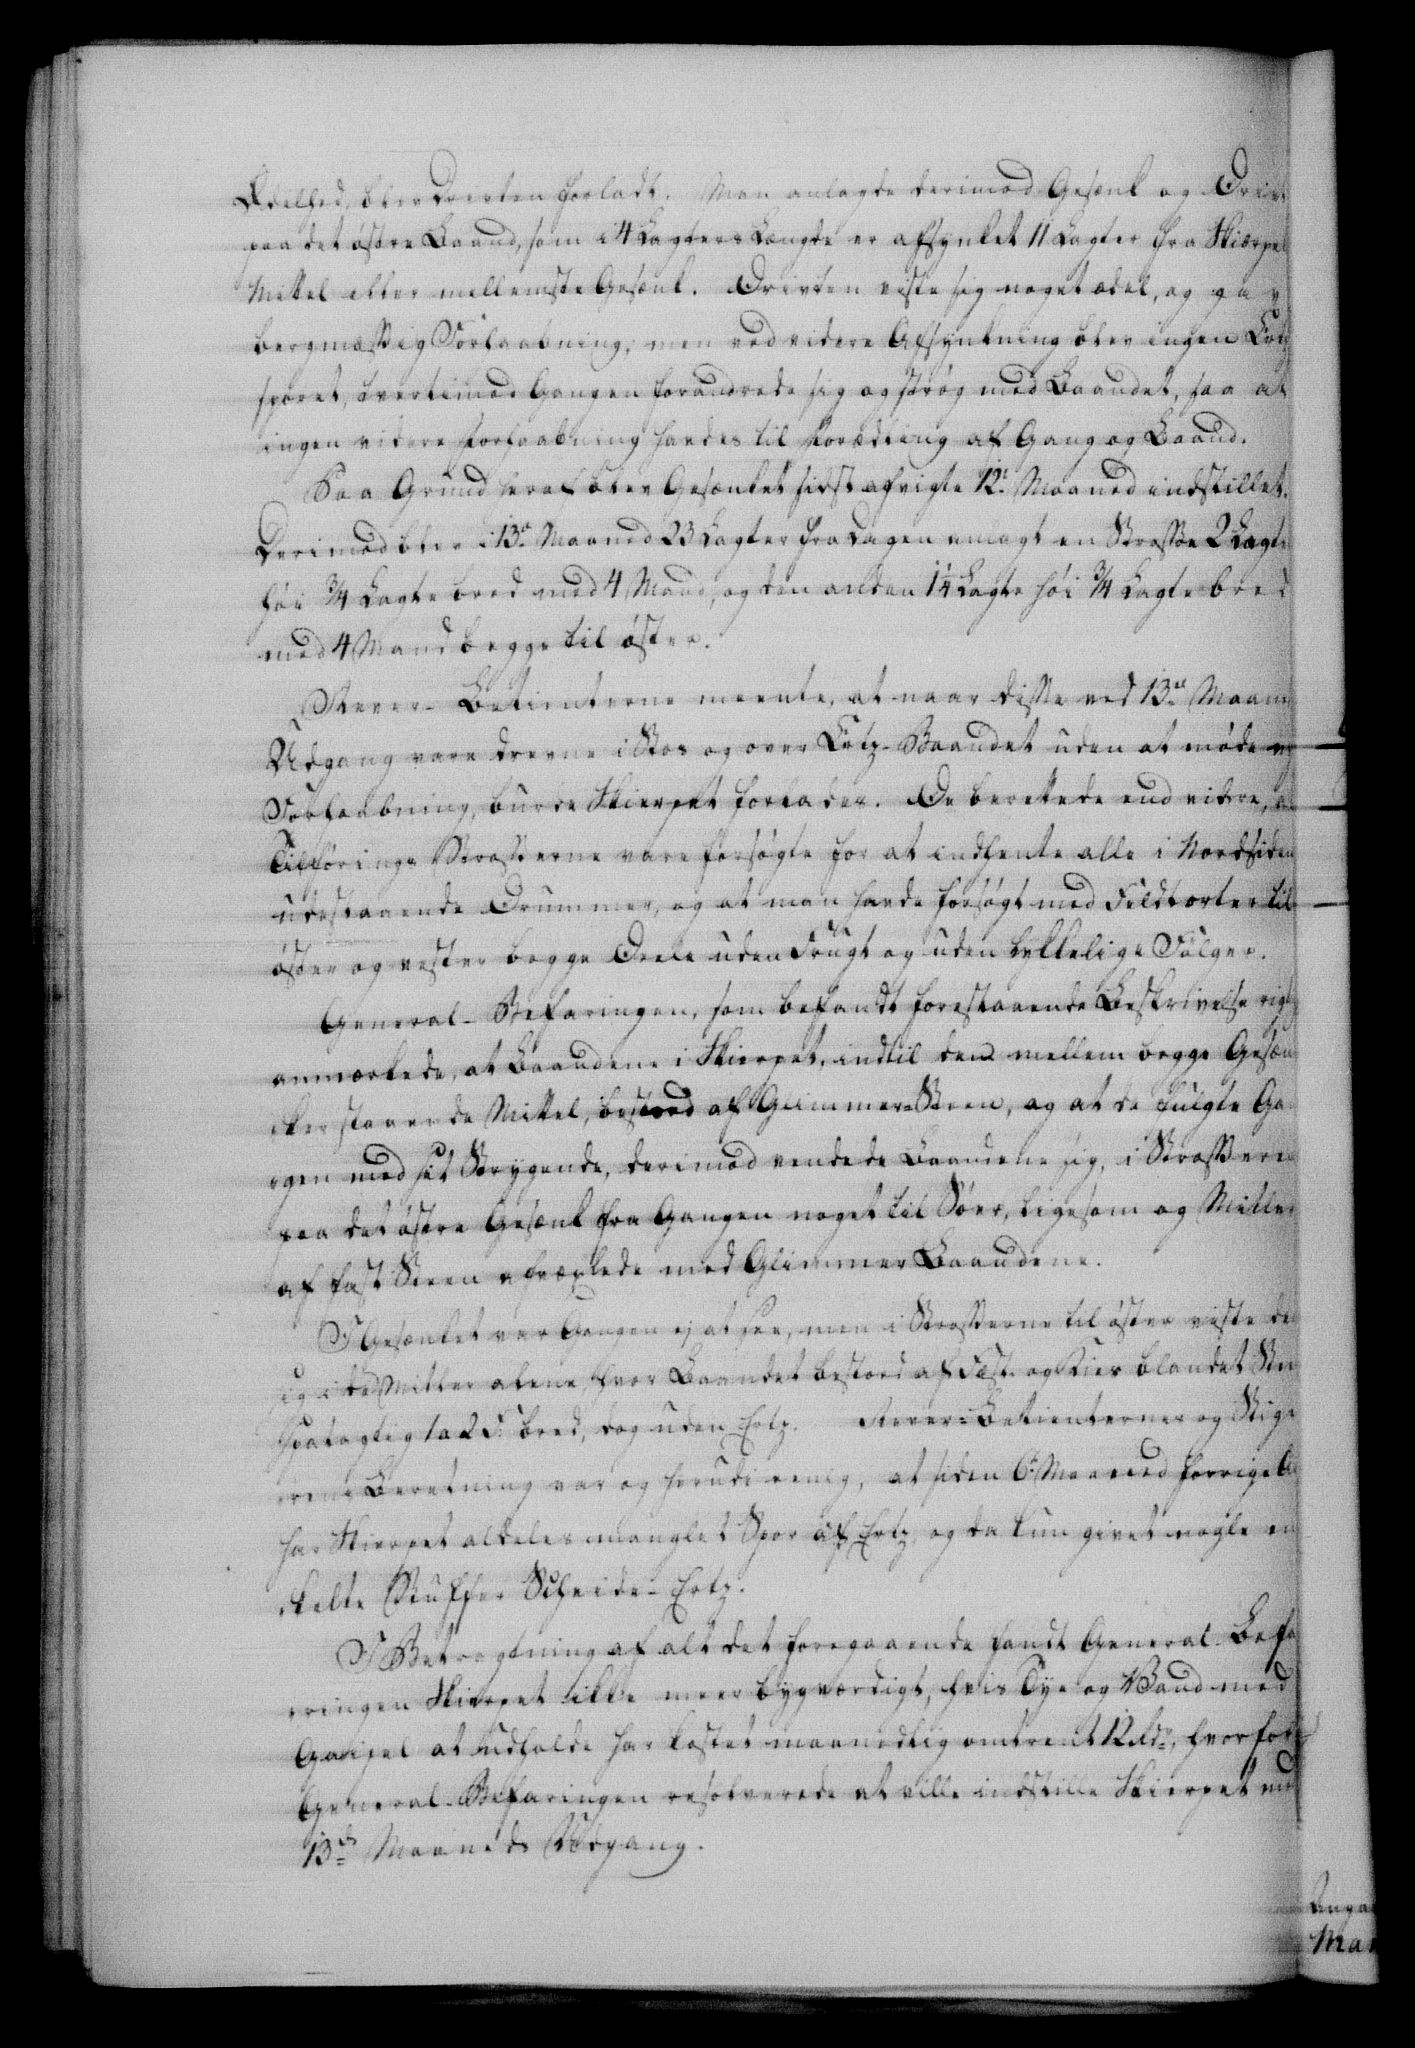 Ædelhed, blev Driften forladt. Man anlagde derimod Gesænk og Drivt
paa det østre Baand, som i 4 Lagters Længde er afsynket 11 Lagter fra Skierpe
Mittel eller mellemste Gesænk. Drivten viste sig noget ædel, og gav
bergmæssig Forhaabning, men ved videre Afsynkning blev ingen Ertz
sporet, tvertimod Gangen forandrede sig og strøg med Baandet, saa at
ingen videre Forhaabning havdes til Forædling af Gang og Baand.
Paa Grund heraf blev Gesænket sidst afvigte 12t Maaned indstillet.
Derimod blev i 13de Maaned 23 Lagter fra Dagen anlagt en Strosse 2 Lagte
høi 3/4 Lagte bred med 4 Mand, og den anden 1 1/4 Lagte høi 3/4 Lagte bred
med 4 Mand begge til øster.
Rever-Betienterne meente, at naar disse ved 13de Maane
Udgang vare drevne i Stos og over Ertz-Baandet uden at møde ny
Forhaabning, burde Skierpet forlades. De berettede end videre, at
Tilføringe Strosserne vare forsøgte for at indhente alle i Nordsiden
udestaaende Drummer, og at man havde forsøgt med Feldtorter til
øster og vester begge Dele uden Frugt og uden lykkelige Følger.
General-Befaringen, som befandt forestaaende Beskrivelse rigtig
anmærkede, at Baandene i Skierpet, indtil den mellem begge Gesæn
ker staaende Mittel, bestood af Glimmer-Steen, og at de fulgte Ga
ngen med sit Strygende, derimod vendede Baandene sig, i Strosserne
paa det østre Gesænk fra Gangen noget til Søer, ligesom og Mitler
af fast Steen afvexlede med Glimmer Baandene.
I Gesænket var Gangen ej at see, men i Strosserne til øster viste den
sig i det Mitler alene, hvor Baandet bestoed af Fast og Kies blandet Ste
Spatagtig 1 a 2 T: bred, dog uden Ertz. Rever-Betienternes og Stige
rens Beretning var og herudi eenig, at siden 6te Maaned forrige Aar
har Skierpet aldeles manglet Spor af Ertz, og da kun givet nogle en
kelte Stuffer Scheide-Ertz.
I Betragtning af alt det foregaaende fandt General-Befa
ringen Skierpet ikke meer bygværdigt, hvis Tye og Vand med
Gaipel at udholde har kostet maanedlig omtrent 12 Rdr, hvorfor
General-Befaringen resolverede at ville indstille Skierpet med
13de Maaneds Udgang.